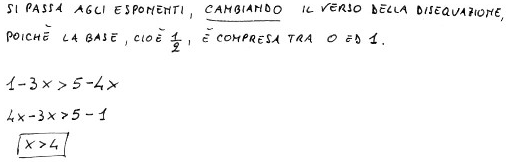 SI PASSA AGLI ESPONENTI, CAMBIANDO IL VERSO DELLA DISEQUAZIONE,
POICHÉ LA BASE, CIOÈ 1/2, È COMPRESA TRA 0 ED 1.
1-3x>5-4x
4x-3x>5-1
x>4